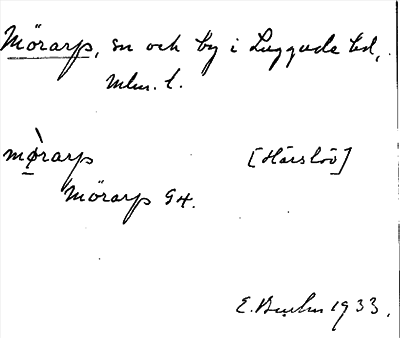 Mörarp, sn och by i Luggude hd,
Mlm. l.
mø̀rarp [Härslöv]
Mörarp G4.
1933.